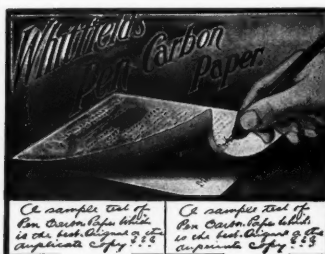 Whitfield's
Pen Carbon
Paper.
A sample test of
Pen Carbon Paper which
is the best. Original or the
duplicate copy ? ? ?
A sample test of
Pen Carbon Paper which
is the best. Original or the
duplicate copy ? ? ?